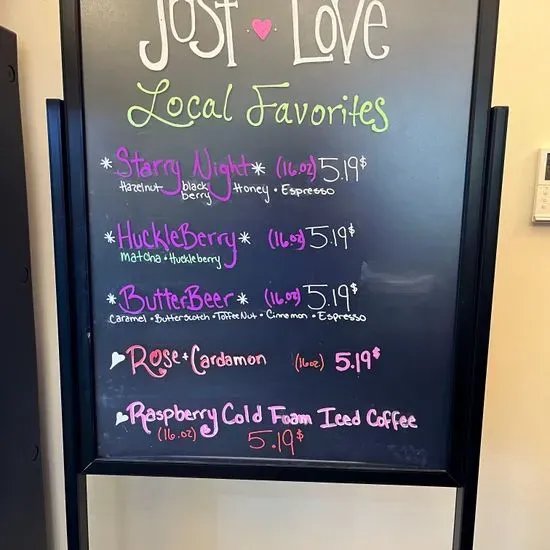 Just ♥ Love
Local Favorites
*Starry Night* (16.oz) 5.19$
Hazelnut blackberry Honey • Espresso
*HuckleBerry* (16.oz) 5.19$
matcha • Huckleberry
*ButterBeer* (16.oz) 5.19$
Caramel • Butterscotch • Toffee Nut • Cinnamon • Espresso
Rose + Cardamon (16oz) 5.19$
Raspberry Cold Foam Iced Coffee
(16.oz) 5.19$